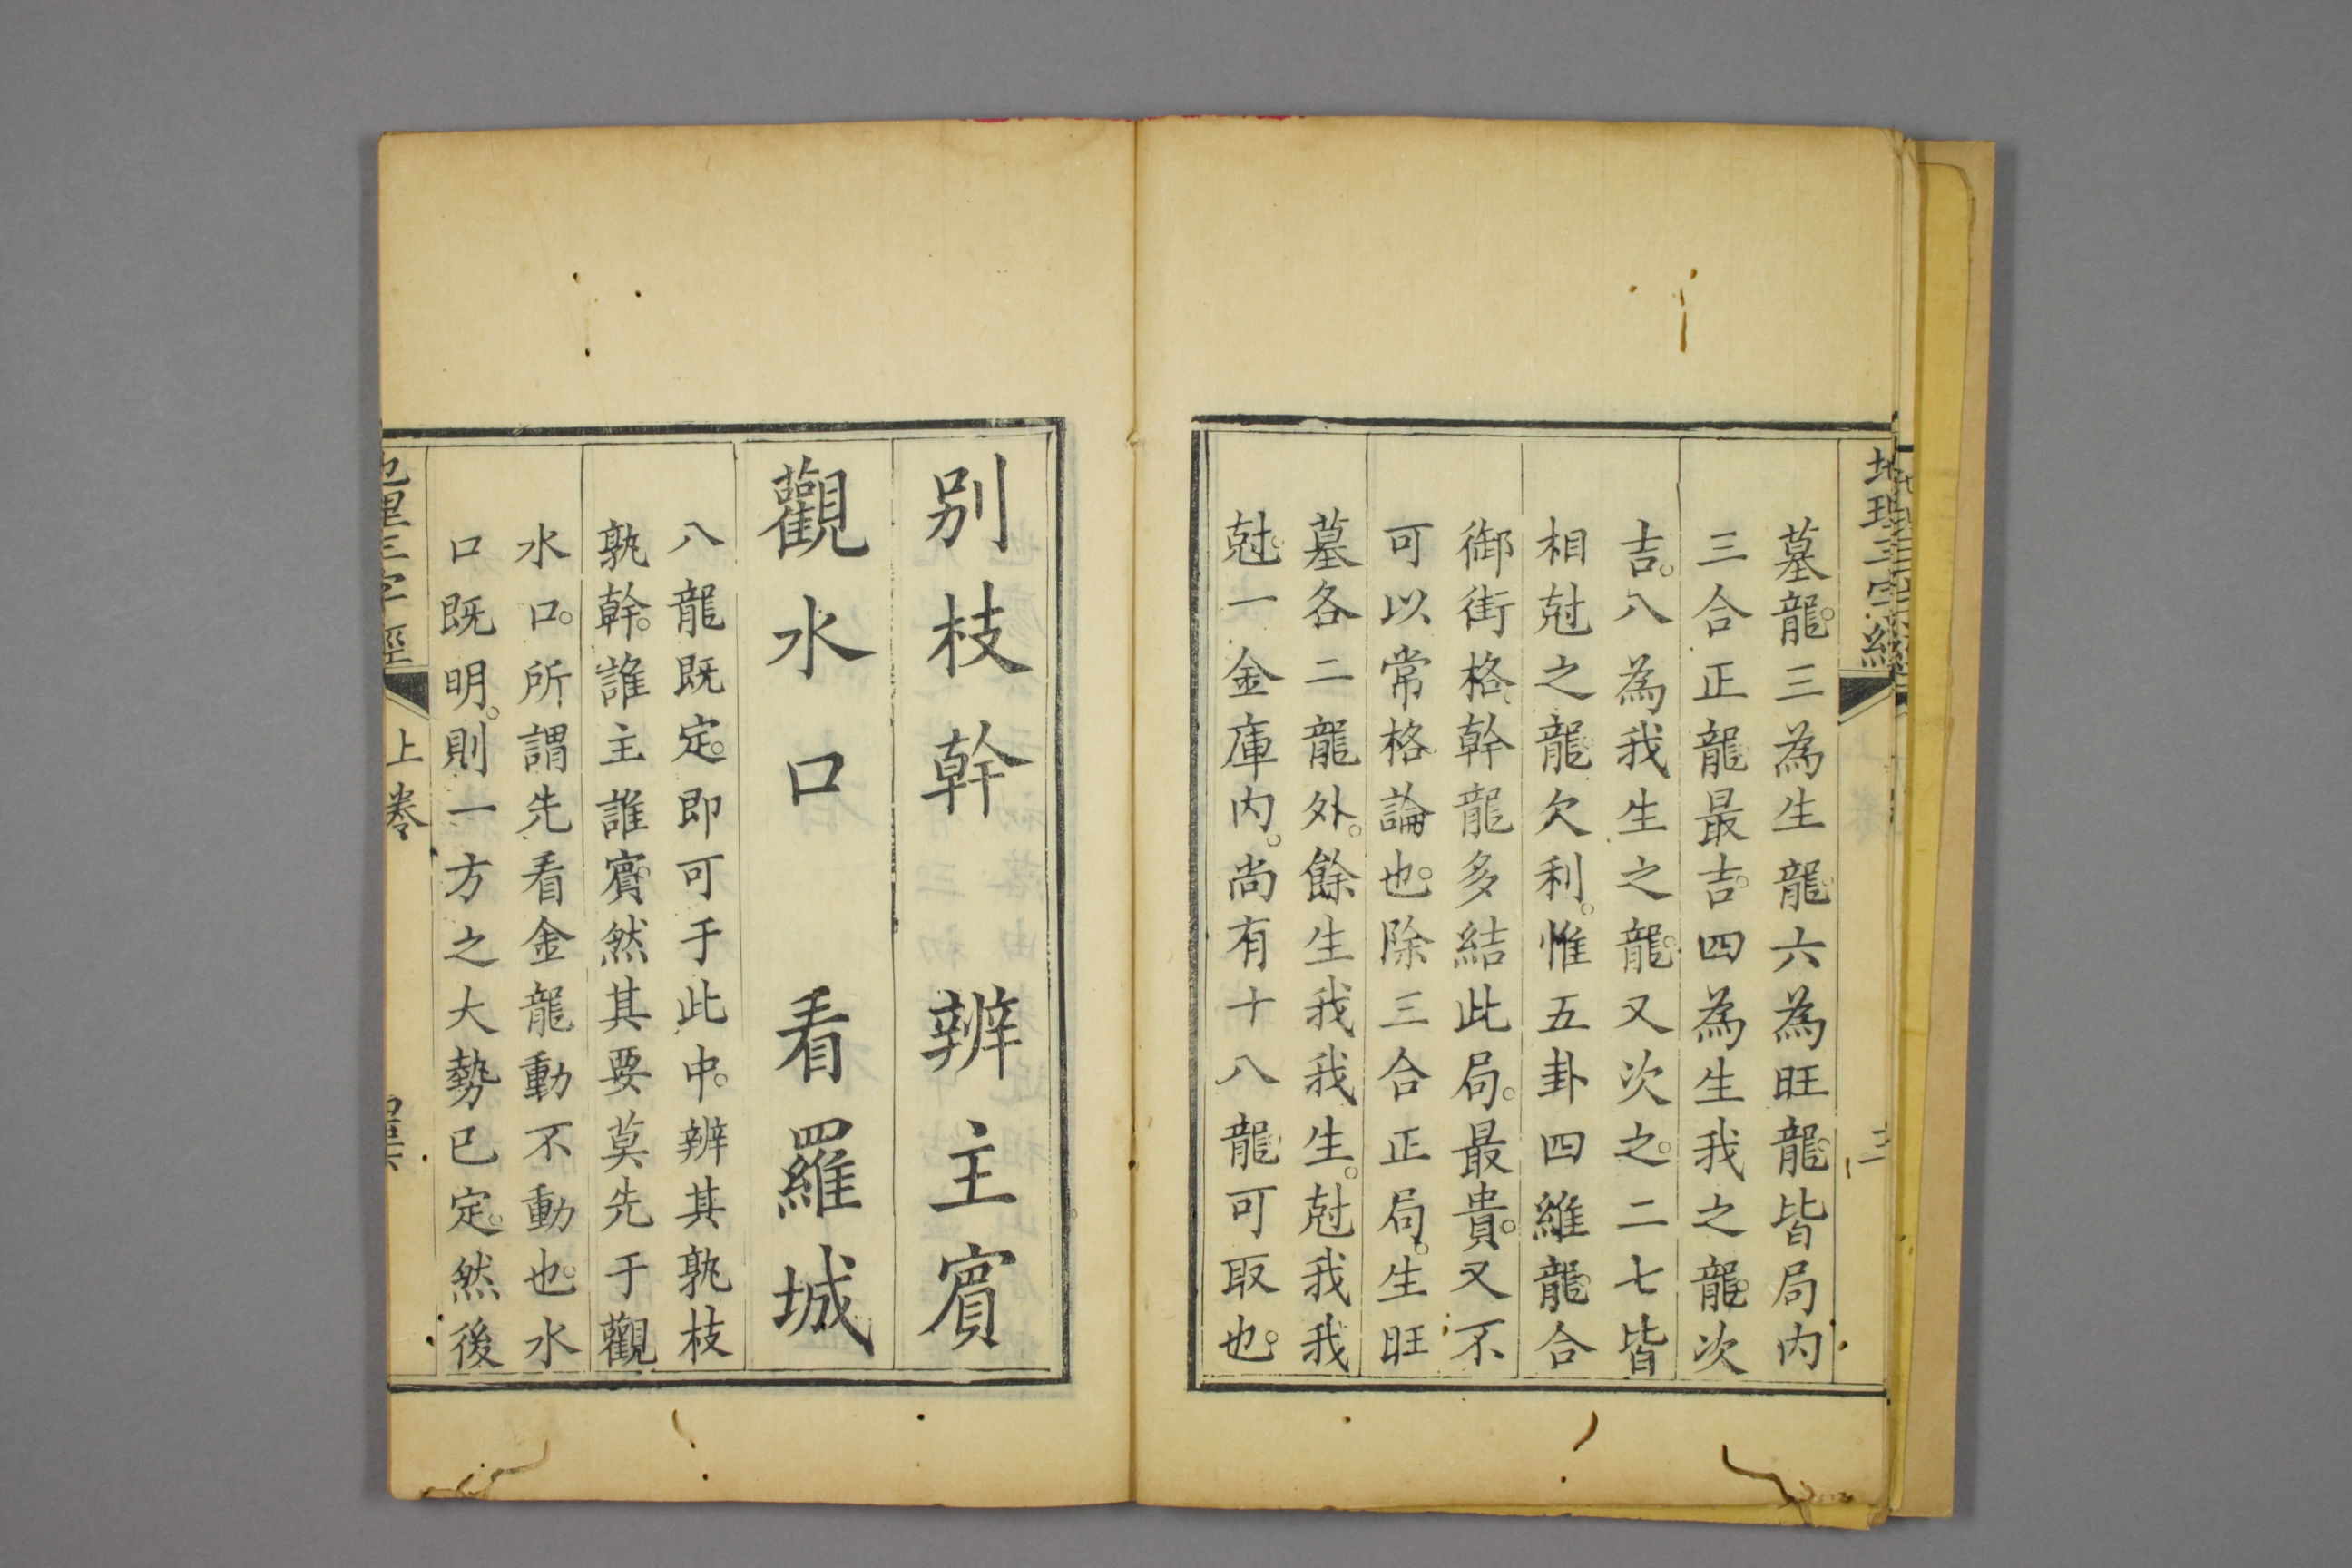 地理三字經
墓龍。三為生龍。六為旺龍。皆局内
三合正龍。最吉。四為生我之龍。次
吉。八為我生之龍。又次之。二七皆
相尅之龍。欠利。惟五卦四維龍。合
御街格。幹龍多結此局。最貴。又不
可以常格論也。除三合正局。生旺
墓各二龍外。餘生我我生。尅我我
尅。一金庫内。尚有十八龍。可取也。
別枝幹　辨主賓
觀水口　看羅城
八龍既定。即可于此中。辨其孰枝
孰幹。誰主誰賓。然其要莫先于觀
水口。所謂先看金龍動不動也。水
口既明。則一方之大勢已定。然後
地理三字經　上卷